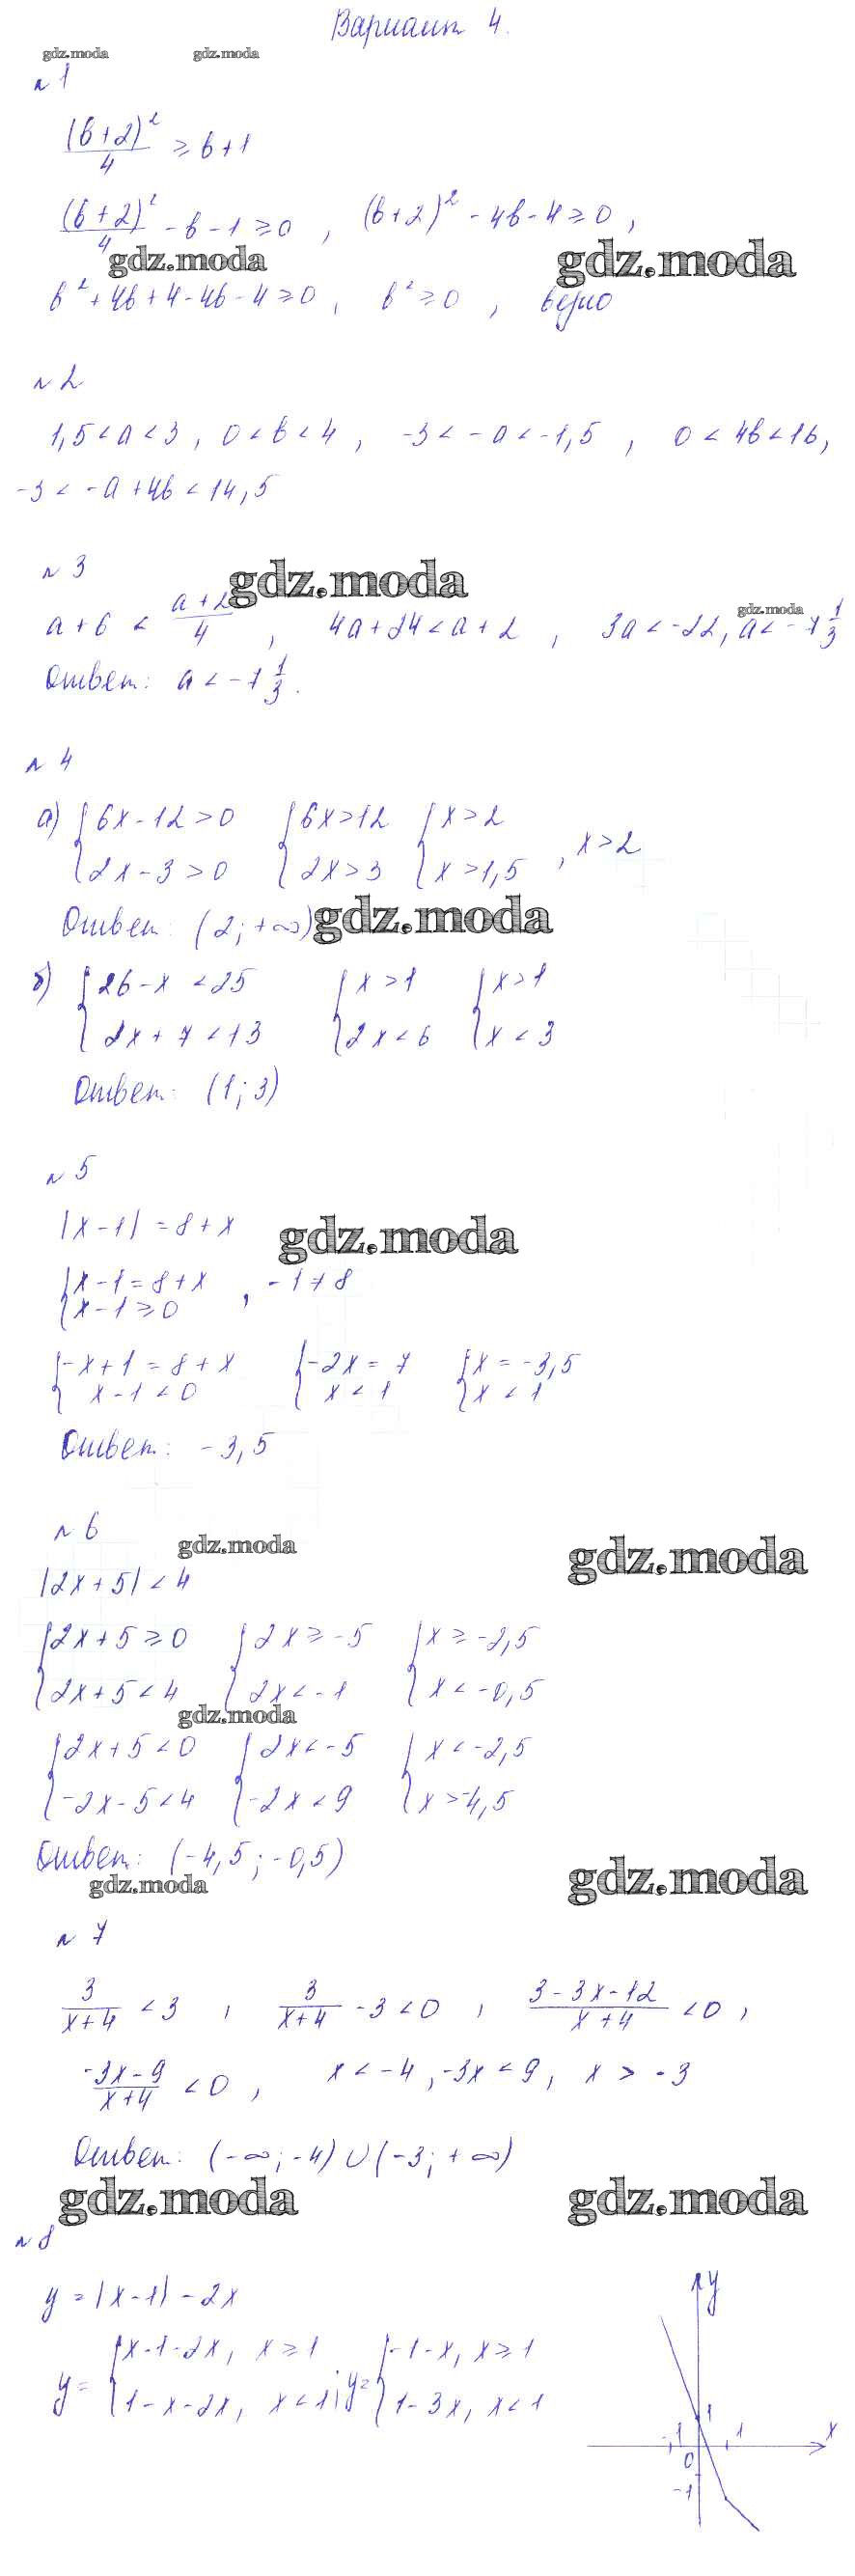 Вариант 4.
gdz.moda gdz.moda
№ 1
(b+2)²/4 ≥ b+1
(b+2)²/4 - b - 1 ≥ 0 , (b+2)² - 4b - 4 ≥ 0 ,
gdz.moda gdz.moda
b² + 4b + 4 - 4b - 4 ≥ 0 , b² ≥ 0 , верно
№ 2
1,5 < a < 3 , 0 < b < 4 , -3 < -a < -1,5 , 0 < 4b < 16 ,
-3 < -a + 4b < 14,5
№ 3
gdz.moda
a + 6 < (a+2)/4 , 4a + 24 < a + 2 , 3a < -22, a < -7 1/3
gdz.moda
Ответ: a < -7 1/3 .
№ 4
а) { 6x - 12 > 0 { 6x > 12 { x > 2
{ 2x - 3 > 0 { 2x > 3 { x > 1,5 , x > 2
Ответ: (2; +∞)
gdz.moda
б) { 26 - x < 25 { x > 1 { x > 1
{ 2x + 7 < 13 { 2x < 6 { x < 3
Ответ: (1; 3)
№ 5
|x - 1| = 8 + x
gdz.moda
{ x - 1 = 8 + x , -1 ≠ 8
{ x - 1 ≥ 0
{ -x + 1 = 8 + x { -2x = 7 { x = -3,5
{ x - 1 < 0 { x < 1 { x < 1
Ответ: -3,5
№ 6
gdz.moda gdz.moda
|2x + 5| < 4
{ 2x + 5 ≥ 0 { 2x ≥ -5 { x ≥ -2,5
{ 2x + 5 < 4 { 2x < -1 { x < -0,5
gdz.moda
{ 2x + 5 < 0 { 2x < -5 { x < -2,5
{ -2x - 5 < 4 { -2x < 9 { x > -4,5
Ответ: (-4,5; -0,5)
gdz.moda gdz.moda
№ 7
3/(x+4) < 3 , 3/(x+4) - 3 < 0 , (3 - 3x - 12)/(x+4) < 0 ,
(-3x - 9)/(x+4) < 0 , x < -4 , -3x < 9 , x > -3
Ответ: (-∞; -4) ∪ (-3; +∞)
gdz.moda gdz.moda
№ 8
y = |x - 1| - 2x
y = { x - 1 - 2x, x ≥ 1 ; y = { -1 - x, x ≥ 1
{ 1 - x - 2x, x < 1 { 1 - 3x, x < 1
y
1
-1 1 x
0
-1